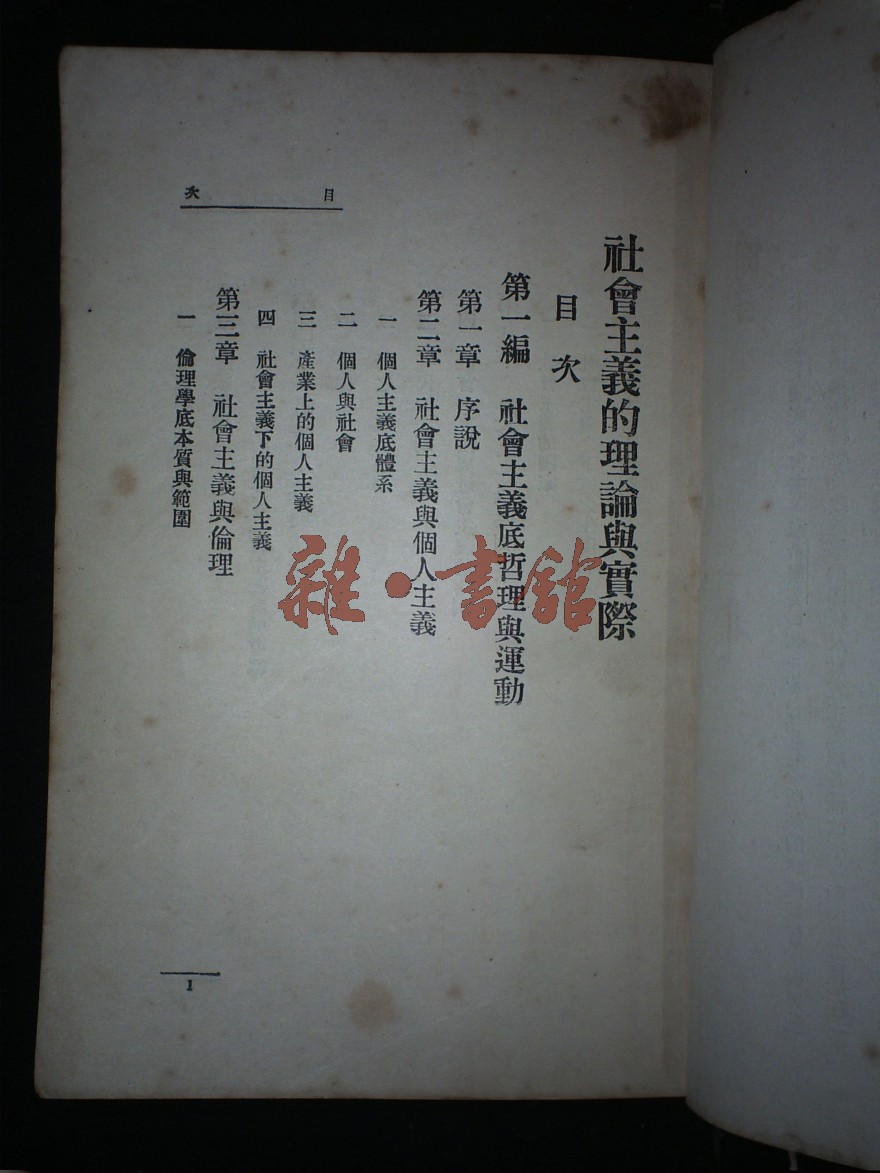 目次
社會主義的理論與實際
目次
第一編 社會主義底哲理與運動
第一章 序說
第二章 社會主義與個人主義
一 個人主義底體系
二 個人與社會
三 產業上的個人主義
四 社會主義下的個人主義
第三章 社會主義與倫理
一 倫理學底本質與範圍
1
雜·書館